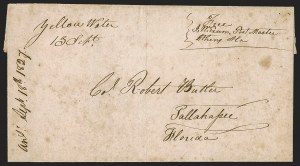 Yellow Water
15 Sept.
Free
Post Master
Col. Robert Butler
Tallahassee
Florida
Sept 18th 1827